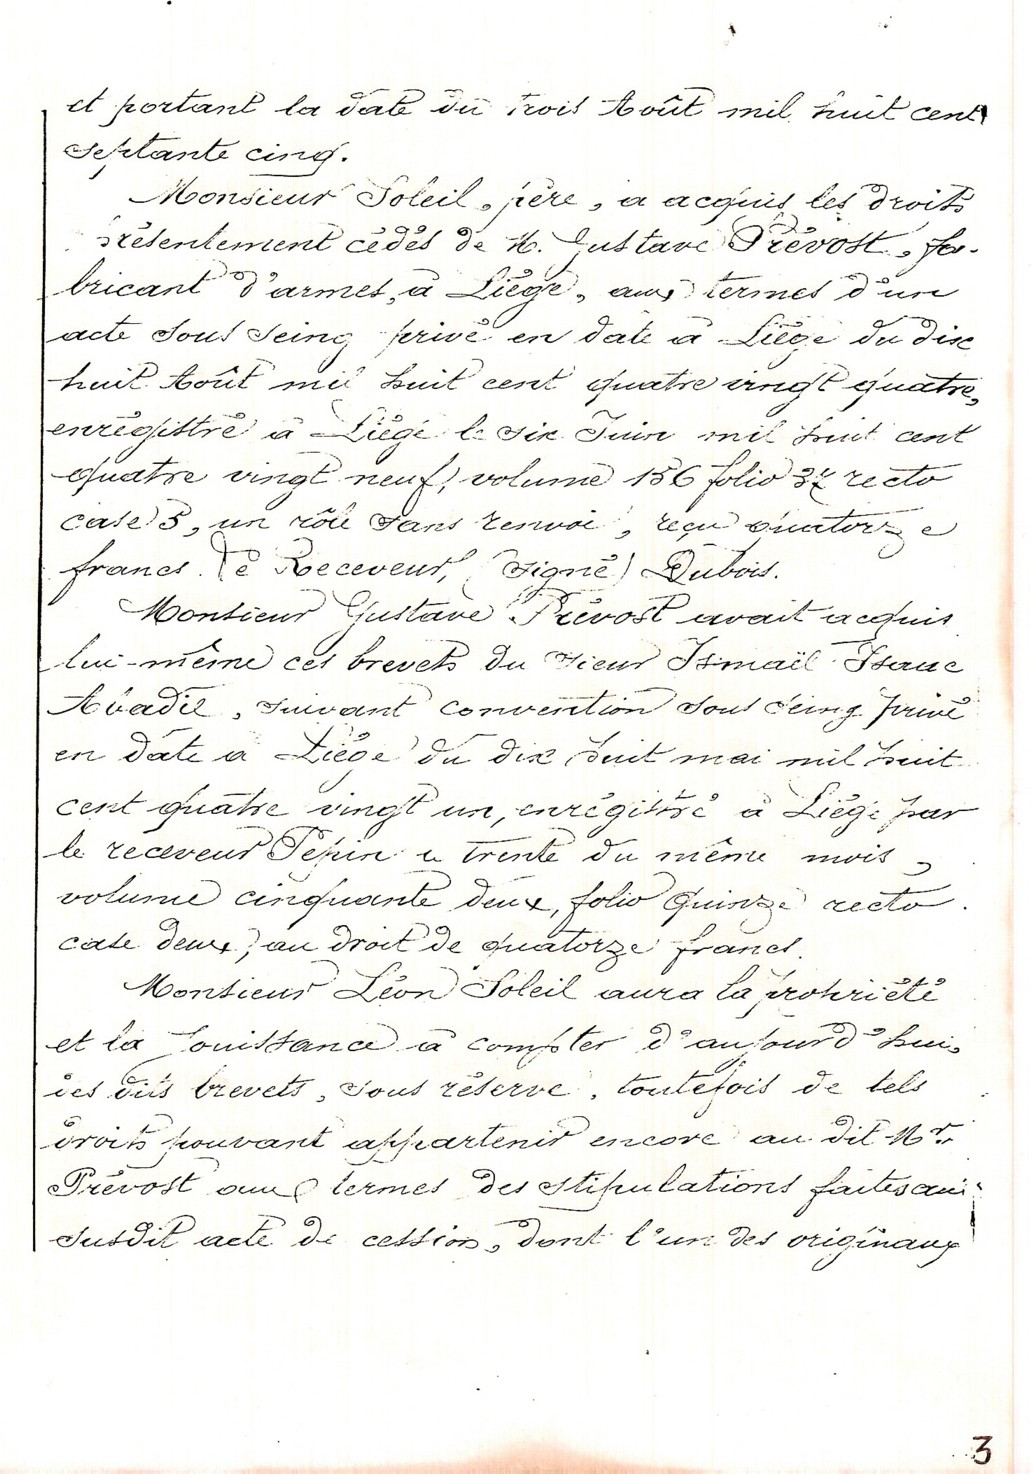 et portant la date du trois Août mil huit cent
septante cinq.
Monsieur Soleil, père, a acquis les droits
présentement cédés de M. Gustave Prévost, fa-
bricant d'armes, à Liège, aux termes d'un
acte sous seing privé en date à Liège du dix
huit Août mil huit cent quatre vingt quatre,
enrégistré à Liège le six Juin mil huit cent
quatre vingt neuf, volume 156 folio recto
case 5, un rôle sans renvoi, reçu quatorze
francs. Le Receveur, (signé) Dubois.
Monsieur Gustave Prévost avait acquis
lui-même ces brevets du sieur Ismaël Isaac
Abadie, suivant convention sous seing privé
en date à Liège du dix huit mai mil huit
cent quatre vingt un, enrégistré à Liège par
le receveur Pépin le trente du même mois,
volume cinquante deux, folio quinze recto
case deux, au droit de quatorze francs.
Monsieur Léon Soleil aura la propriété
et la jouissance à compter d'aujourd'hui,
des dits brevets, sous réserve, toutefois de tels
droits pouvant appartenir encore au dit Mr.
Prévost aux termes des stipulations faites au
susdit acte de cession, dont l'un des originaux
3